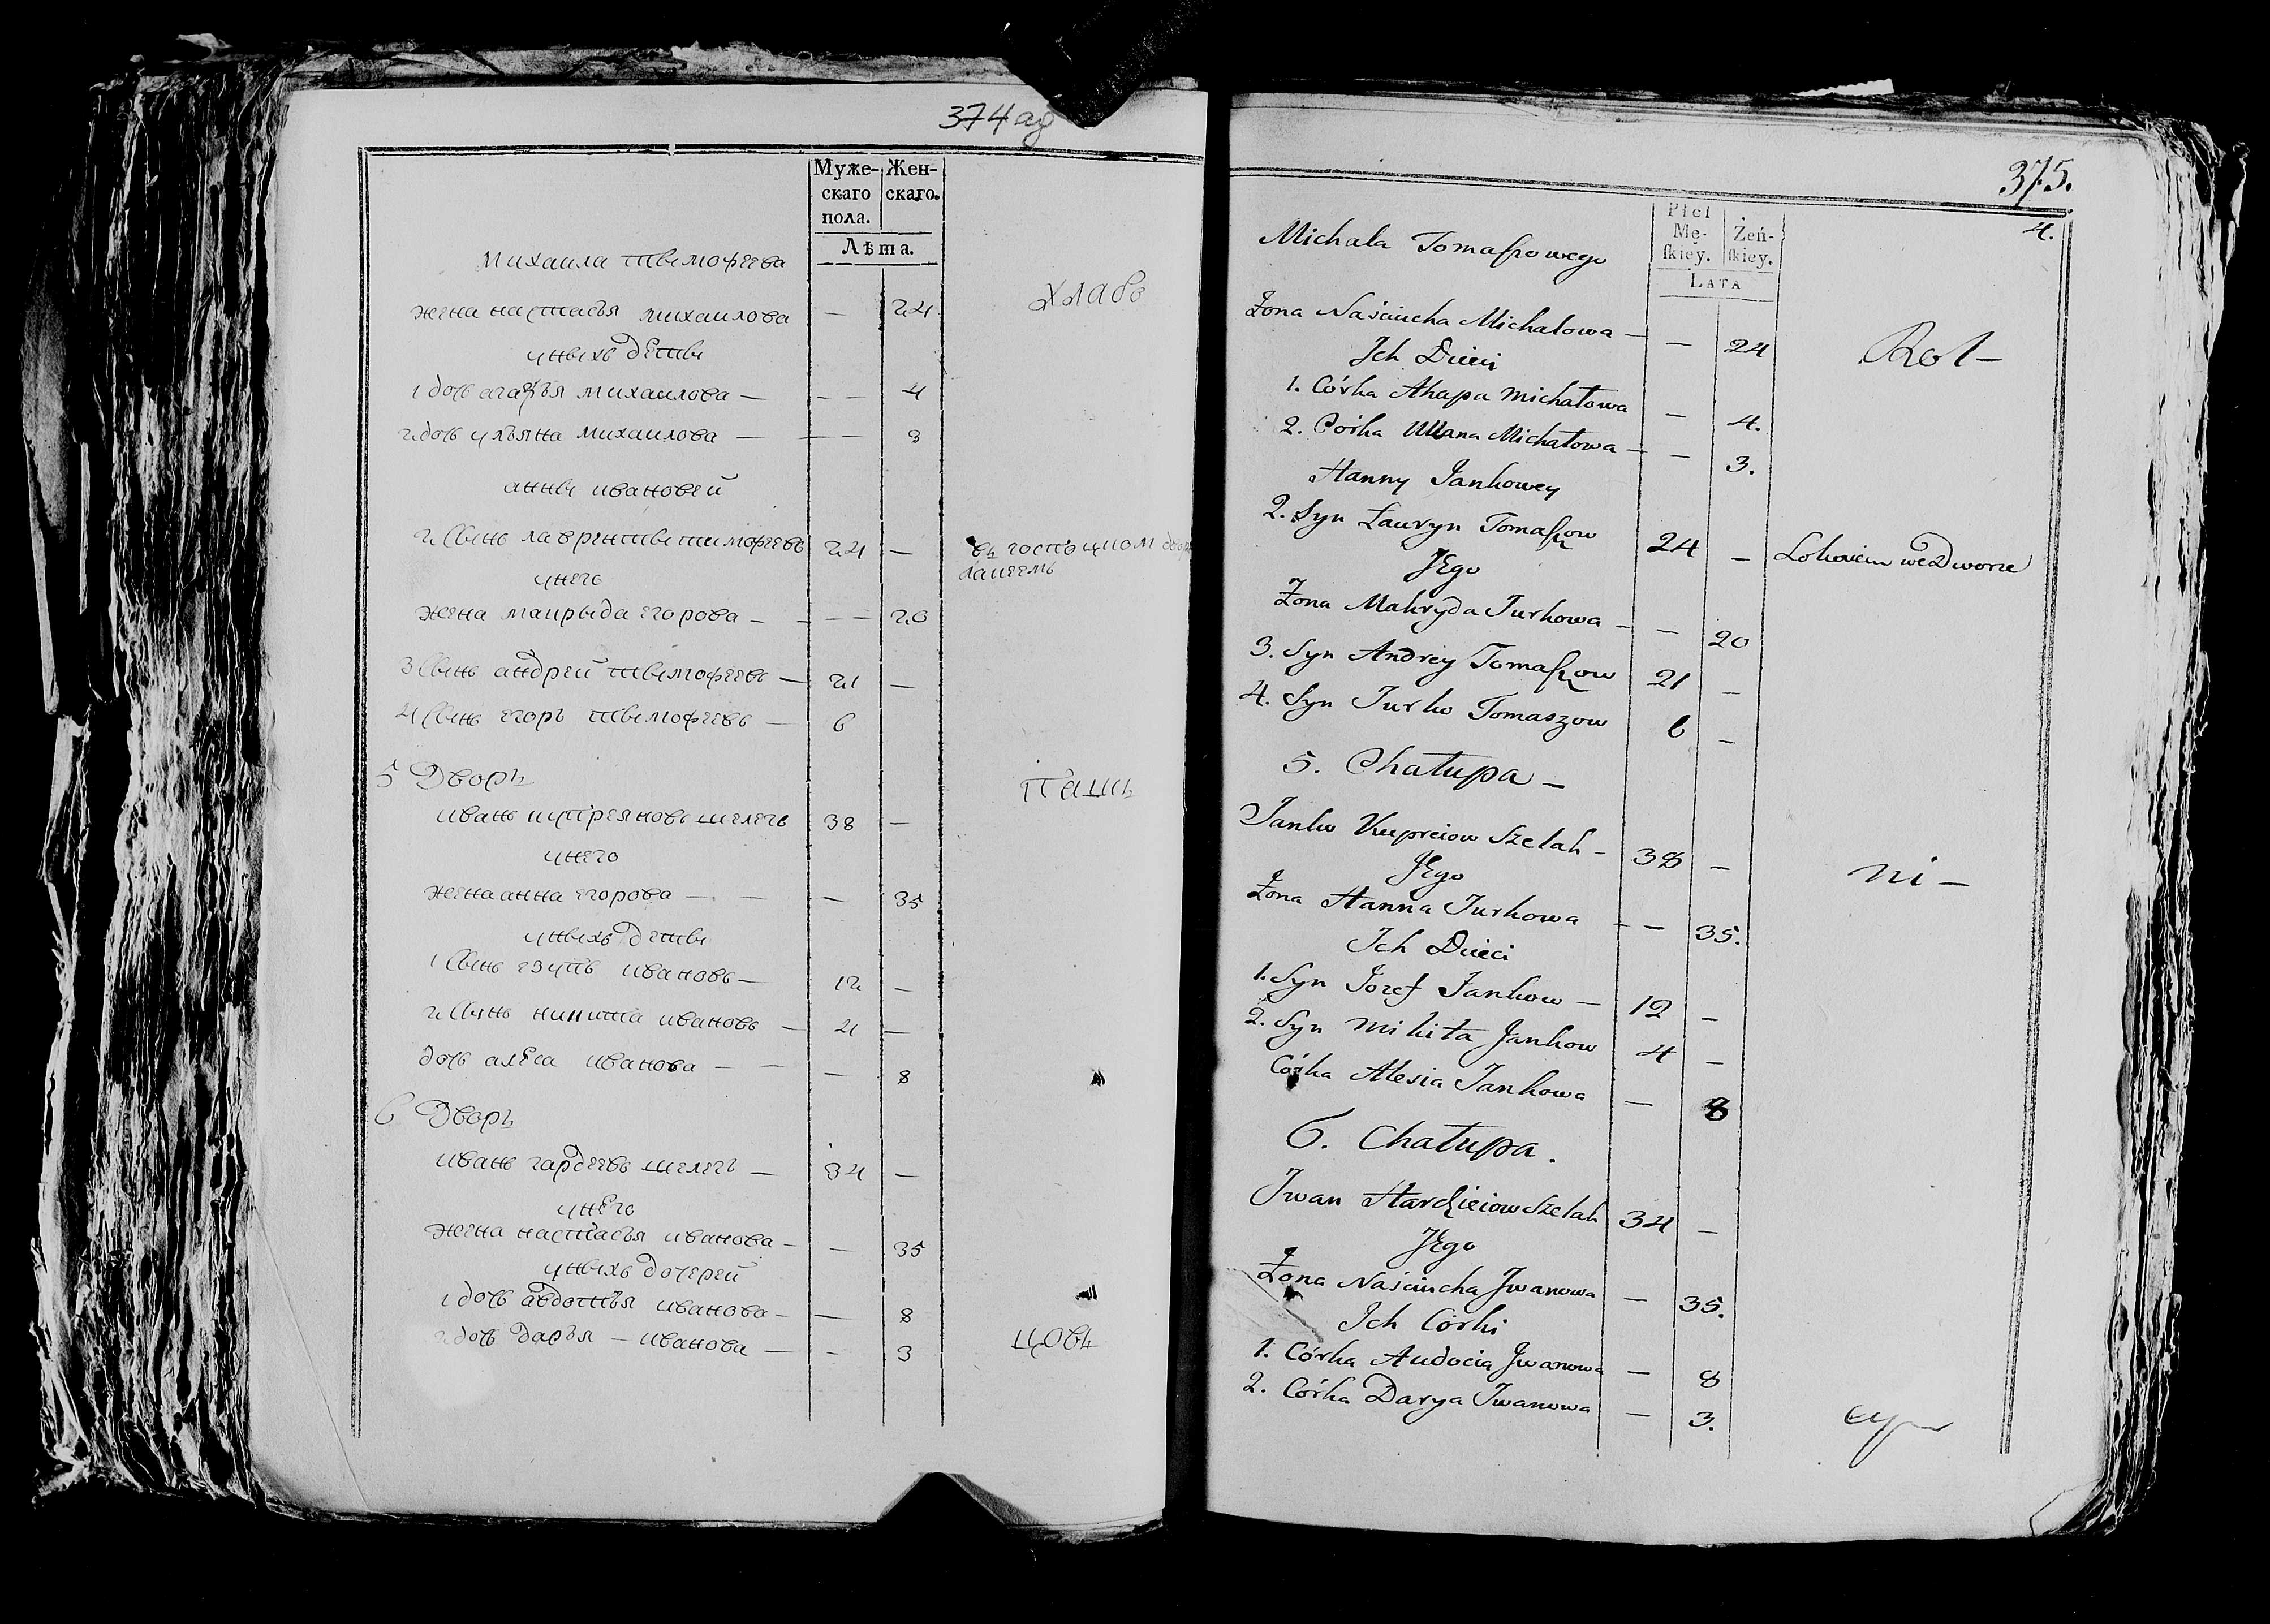 374 аδ
Муже-
скаго
пола.
Жен-
скаго.
Лѣта.
михаила тымофеева
хлабо
жена настасья михаилова — 24
уныхъ дети
1 дочь агафья михаилова — — — 4
2 дочь ульяна михаилова — — — 3
анны ивановей
2 сынь лавренты тимофеевъ 24 —
унего
жена макрыда егорова — — — 20
3 сынь андрей тымофеевъ — 21 —
4 сынь егоръ тымофеевъ — 6
5 Дворъ
пашъ
иванъ купреяновъ шелегъ 38 —
унего
жена анна егорова — — — 35
уныхъ дети
1 сынь езупъ ивановъ — 12 —
2 сынь никита ивановъ — 4 —
дочь алеса иванова — — — 8
6 Дворъ
иванъ гардеевъ шелегъ — 34 —
унего
жена настасья иванова — — 35
уныхъ дочерей
1 дочь авдотья иванова — — 8
2 дочь дарья — иванова — — 3
цовъ
375.
4.
Płci
Mę-
skiey.
Żeń-
skiey.
LATA
Michała Tomaszowego
Żona Naściucha Michałowa — — 24
Rol —
Ich Dzieci
1. Córka Ahapa Michałowa — 4.
2. Córka Ullana Michałowa — — 3.
Hanny Jankowey
2. Syn Łauryn Tomaszow 24 — Lokaiem we Dworze
Jego
Żona Makryda Jurkowa — — 20
3. Syn Andrey Tomaszow 21 —
4. Syn Jurko Tomaszow 6 —
5. Chałupa —
Janko Kupreiow Szelah — 38 —
ni —
Jego
Żona Hanna Jurkowa — — 35.
Ich Dzieci
1. Syn Jozef Jankow — 12 —
2. Syn Mikita Jankow 4 —
Córka Alesia Jankowa — 8
6. Chałupa.
Iwan Hardzieiow Szelah 34 —
Jego
Żona Naściucha Iwanowa — 35.
Ich Córki
1. Córka Audocia Iwanowa — 8
2. Córka Darya Iwanowa — 3.
cy